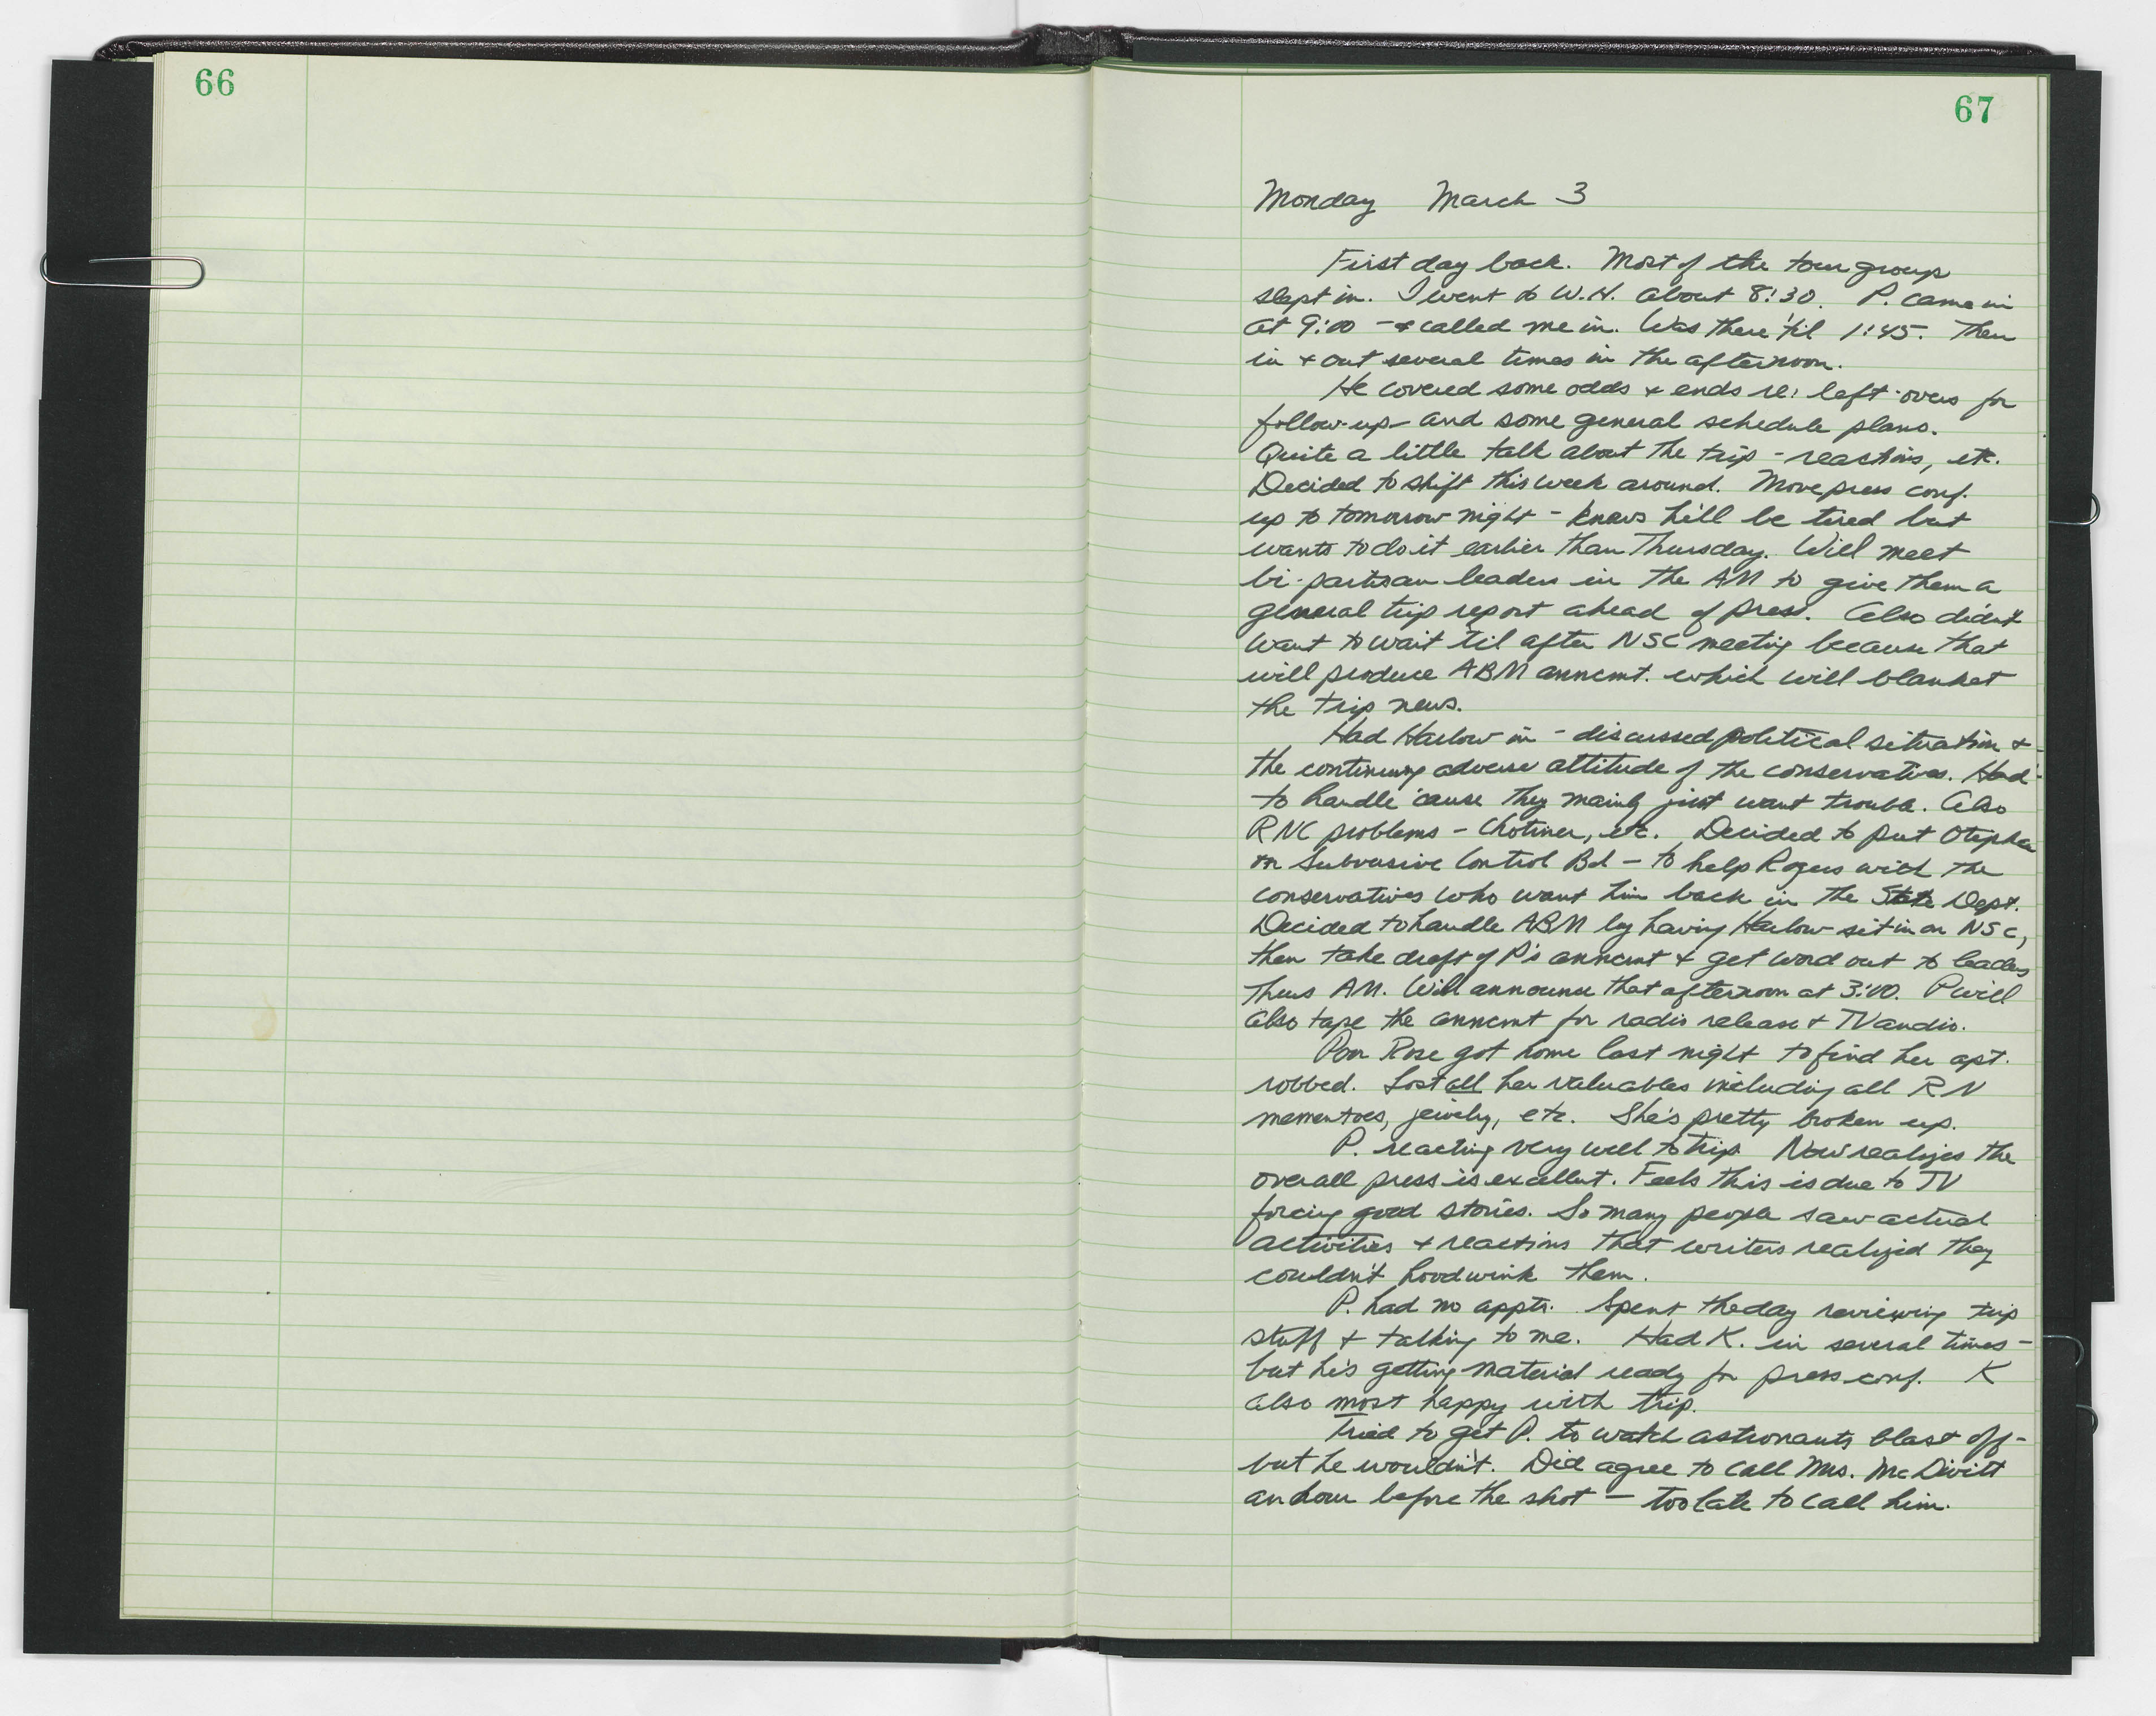 66
67
Monday March 3
First day back. Most of the tour group
slept in. I went to W.H. about 8:30. P. came in
at 9:00 - & called me in. Was there 'til 1:45. Then
in & out several times in the afternoon.
He covered some odds & ends re: left-overs for
follow-up - and some general schedule plans.
Quite a little talk about the trip - reactions, etc.
Decided to shift this week around. Move press conf.
up to tomorrow night - knows he'll be tired but
wants to do it earlier than Thursday. Will meet
bi-partisan leaders in the AM to give them a
general trip report ahead of press. Also didn't
want to wait til after NSC meeting because that
will produce ABM anncmt. which will blanket
the trip news.
Had Harlow in - discussed political situation &
the continuing adverse attitude of the conservatives. Hard
to handle 'cause they mainly just want trouble. Also
RNC problems - Chotiner, etc. Decided to put Otepka
on Subversive Control Bd - to help Rogers with the
conservatives who want him back in the State Dept.
Decided to handle ABM by having Harlow sit in on NSC,
then take draft of P's anncmt & get word out to leaders
Thurs AM. Will announce that afternoon at 3:00. P will
also tape the anncmt for radio release & TV audio.
Poor Rose got home last night to find her apt.
robbed. Lost all her valuables including all RN
mementoes, jewelry, etc. She's pretty broken up.
P. reacting very well to trip. Now realizes the
overall press is excellent. Feels this is due to TV
forcing good stories. So many people saw actual
activities & reactions that writers realized they
couldn't hoodwink them.
P. had no appts. Spent the day reviewing trip
stuff & talking to me. Had K. in several times -
but he's getting material ready for press conf. K
also most happy with trip.
Tried to get P. to watch astronauts blast off -
but he wouldn't. Did agree to call Mrs. McDivitt
an hour before the shot - too late to call him.